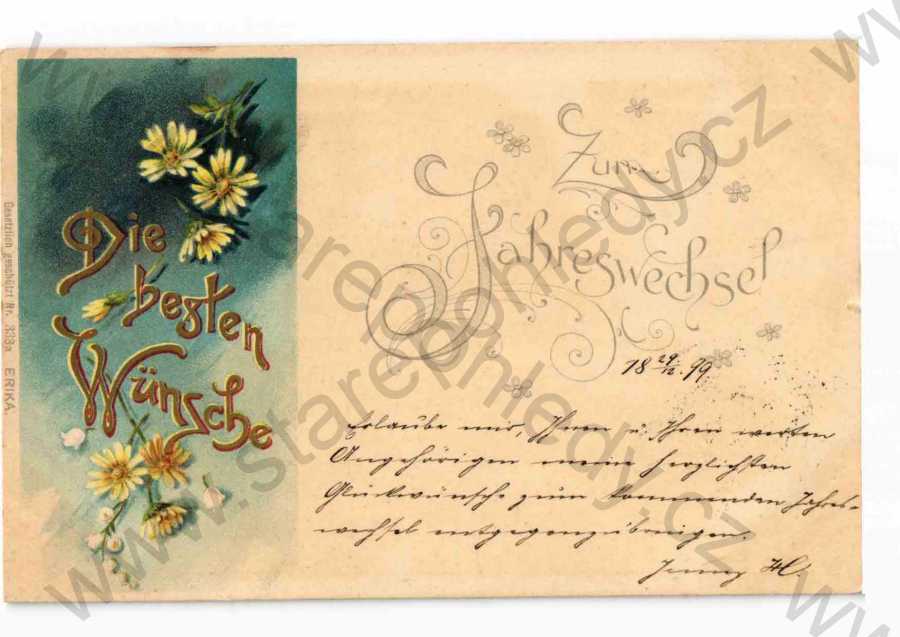 Die
besten
Wünsche
Zum
Jahreswechsel
18 29/12 99
Erlaube mir, Ihnen u. Ihren werten
Angehörigen meine herzlichsten
Glückwünsche zum kommenden Jahres-
wechsel entgegenzubringen.
Jenny H.
Gesetzlich geschützt Nr. 333a ERIKA.
www.starepohledy.cz